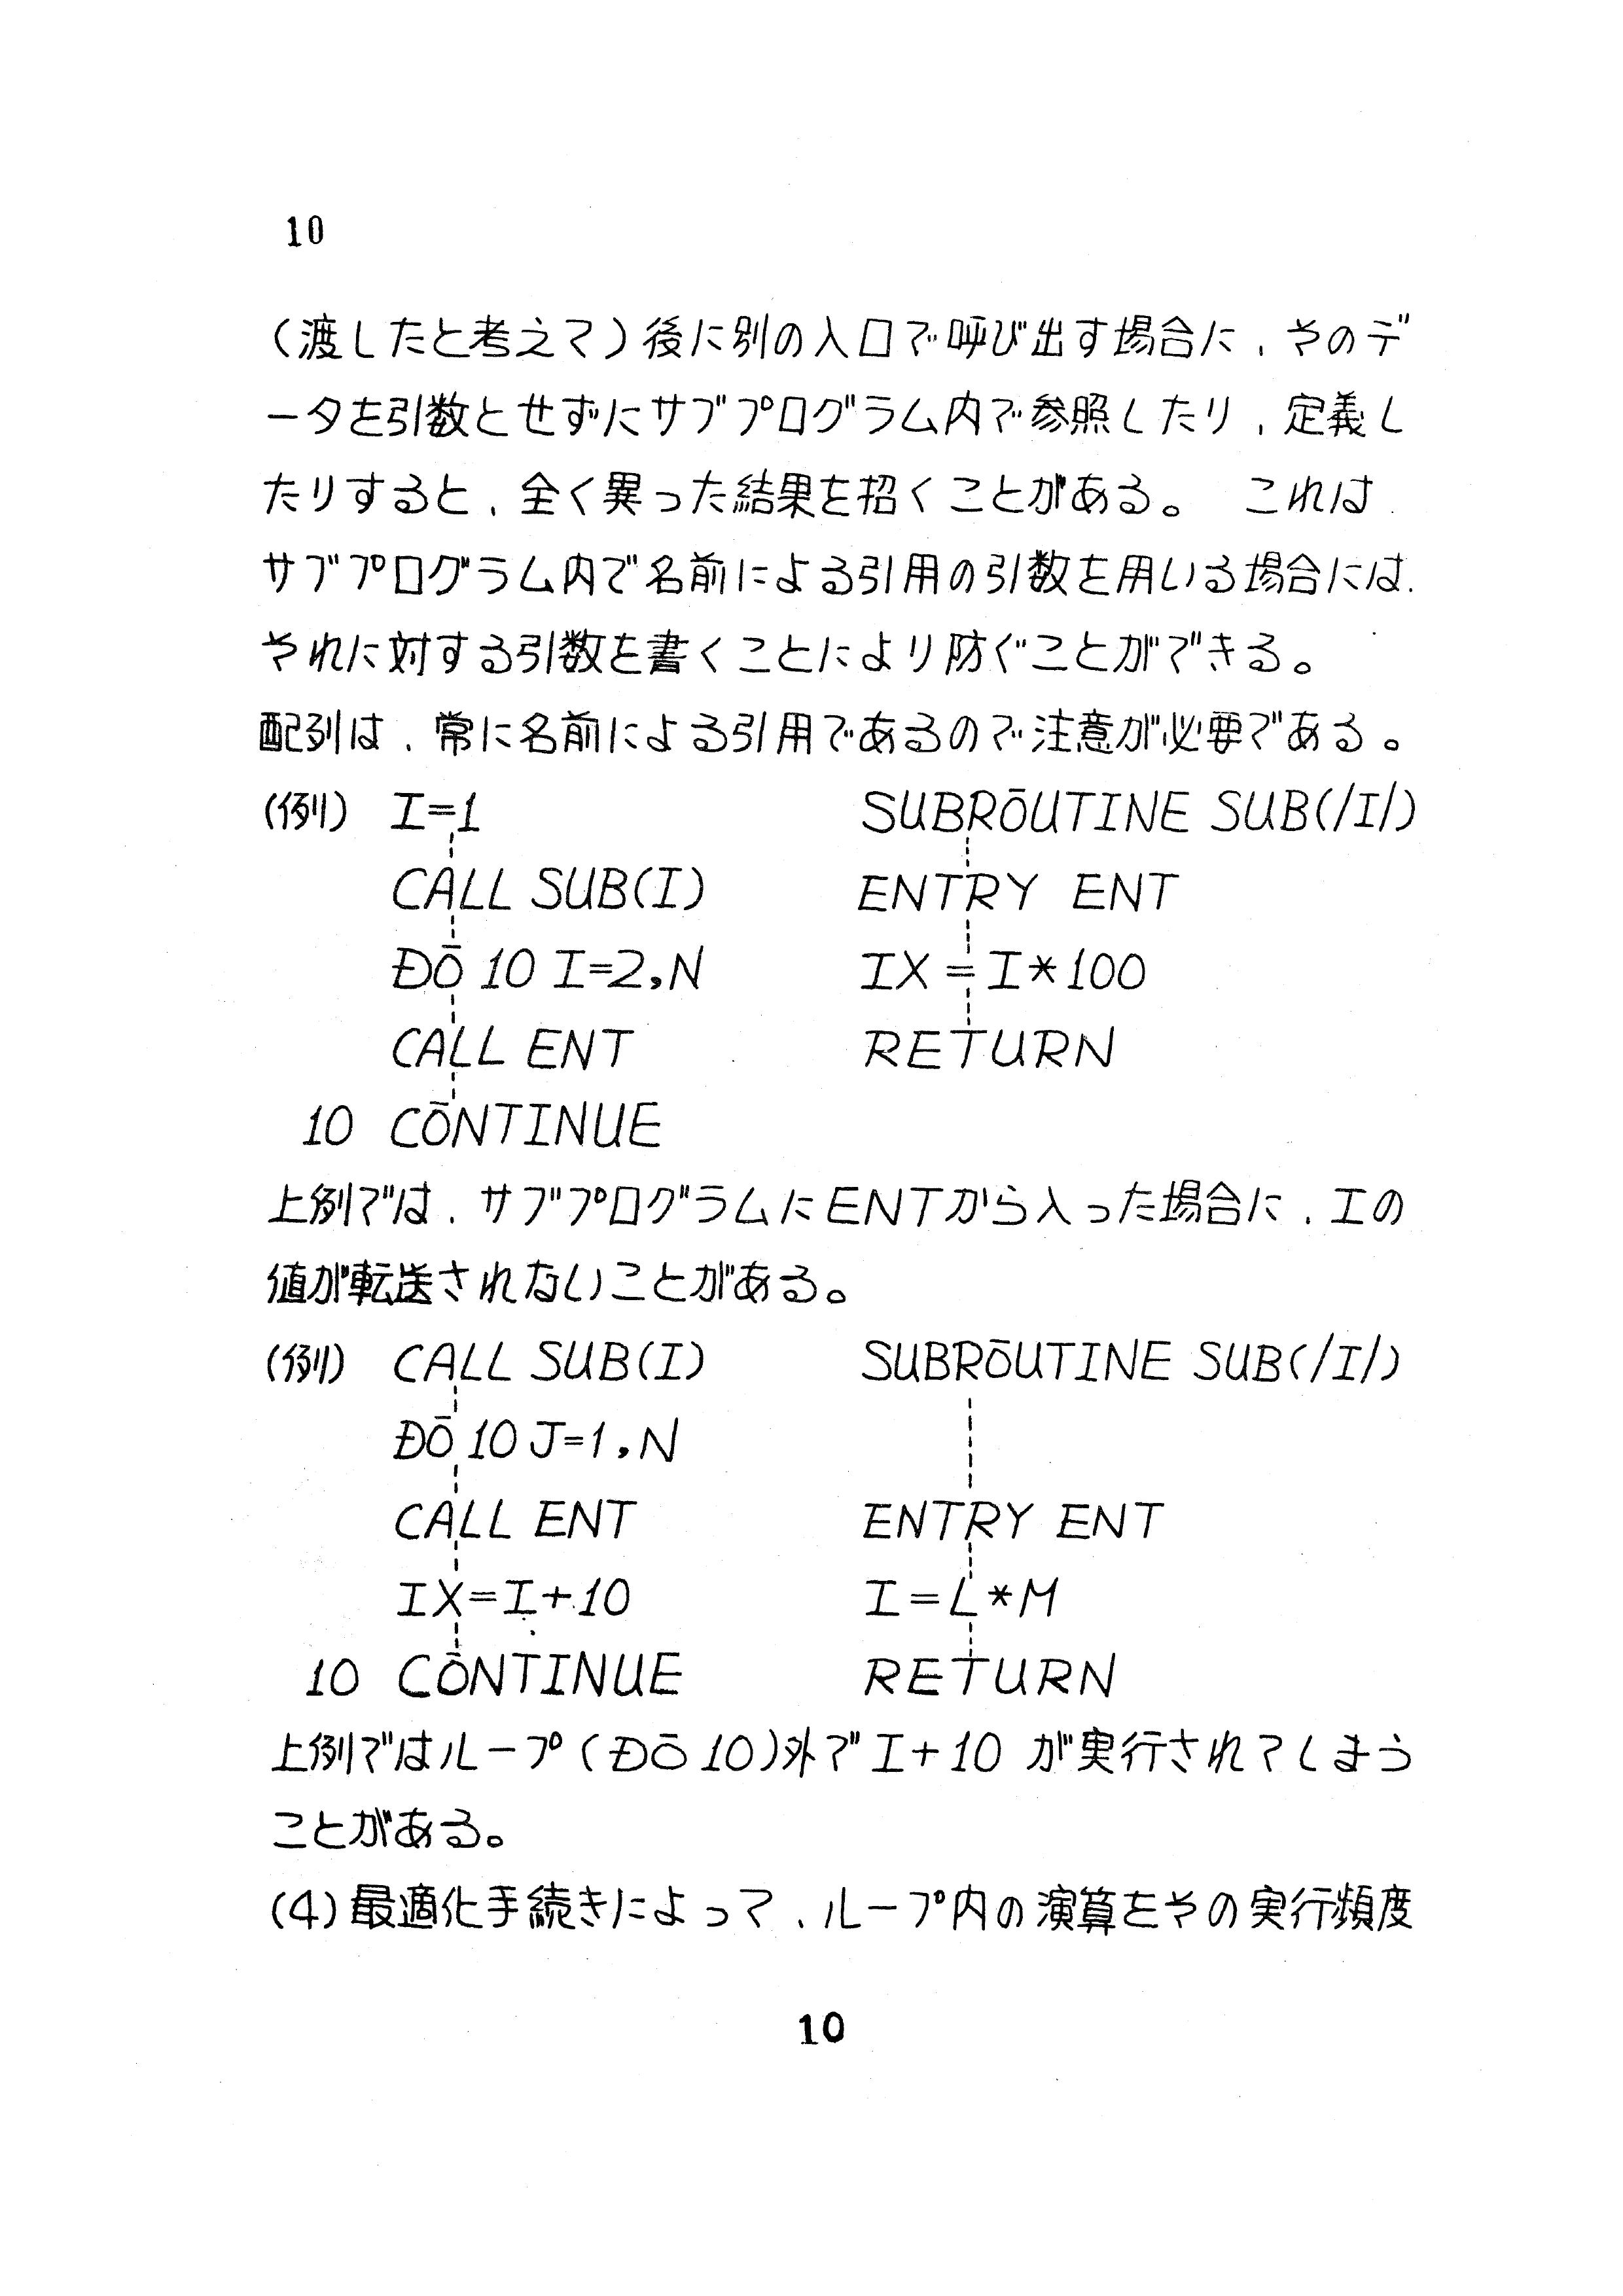 10
（渡したと考えて）後に別の入口で呼び出す場合に，そのデ
ータを引数とせずにサブプログラム内で参照したり，定義し
たりすると，全く異った結果を招くことがある。 これは
サブプログラム内で名前による引用の引数を用いる場合には，
それに対する引数を書くことにより防ぐことができる。
配列は，常に名前による引用であるので注意が必要である。
(例) I=1 SUBRŌUTINE SUB(/I/)
CALL SUB(I) ENTRY ENT
ĐŌ 10 I=2,N IX=I*100
CALL ENT RETURN
10 CŌNTINUE
上例では，サブプログラムにENTから入った場合に，Iの
値が転送されないことがある。
(例) CALL SUB(I) SUBRŌUTINE SUB(/I/)
ĐŌ 10 J=1,N
CALL ENT ENTRY ENT
IX=I+10 I=L*M
10 CŌNTINUE RETURN
上例ではループ(ĐŌ 10)外でI+10 が実行されてしまう
ことがある。
(4)最適化手続きによって，ループ内の演算をその実行頻度
10